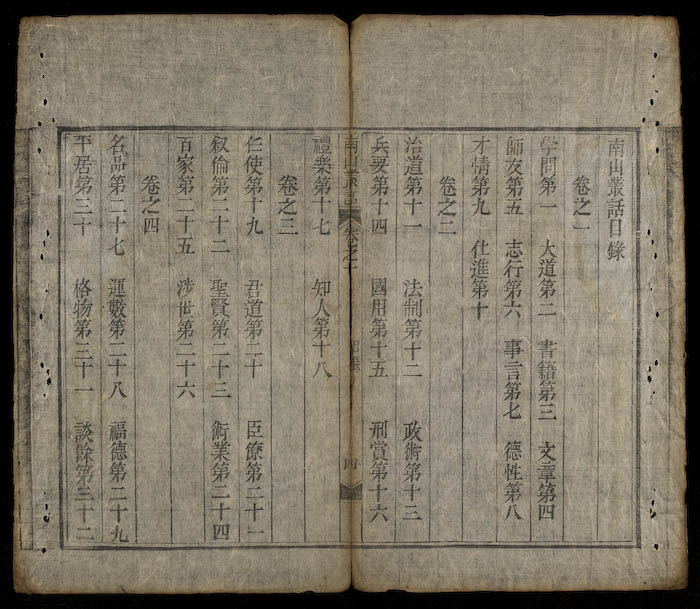 南山叢話目錄
卷之一
学問第一 大道第二 書籍第三 文章第四
師友第五 志行第六 事言第七 德性第八
才情第九 仕進第十
卷之二
治道第十一 法制第十二 政術第十三
兵要第十四 國用第十五 刑賞第十六
南山叢話 卷之一 目錄 四
禮樂第十七 知人第十八
卷之三
任使第十九 君道第二十 臣僚第二十一
叙倫第二十二 聖賢第二十三 術業第二十四
百家第二十五 涉世第二十六
卷之四
名品第二十七 運數第二十八 福德第二十九
平居第三十 格物第三十一 談餘第三十二